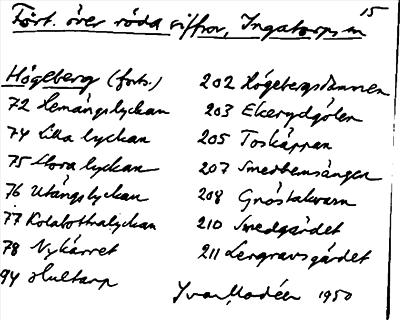 15
Fört. över röda siffror, Ingatorps sn
Högeberg (forts.)
72 Hemängslyckan
74 Lilla lyckan
75 Stora lyckan
76 Utängslyckan
77 Kolabottnalyckan
78 Nykärret
94 Hultarp
202 Högebergsdammen
203 Ekerydgölen
205 Toskärran
207 Smedbemsängen
208 Gnöstakvarn
210 Smedgärdet
211 Lergravsgärdet
Yvar Modéer 1950